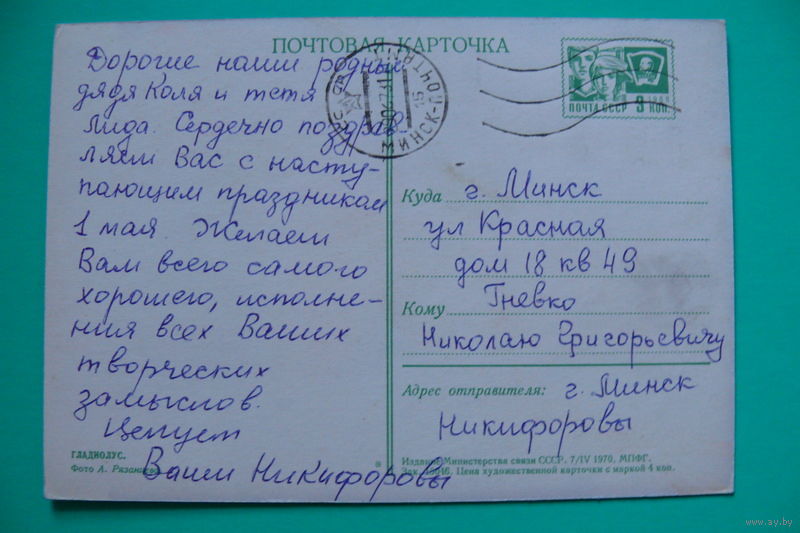 ПОЧТОВАЯ КАРТОЧКА
Дорогие наши родные
дядя Коля и тетя
Лида. Сердечно поздрав-
ляем Вас с насту-
пающим праздником
1 мая. Желаем
Вам всего самого
хорошего, исполне-
ния всех Ваших
творческих
замыслов.
Целуем
Ваши Никифоровы
ГЛАДИОЛУС.
Фото А. Рязанцева
МИНСК-ПОЧТАМТ
ПОЧТА СССР 3 коп.
Куда г. Минск
ул Красная
дом 18 кв 49
Гневко
Кому
Николаю Григорьевичу
Адрес отправителя: г. Минск
Никифоровы
Издание Министерства связи СССР. 7/IV 1970. МПФГ.
Зак. Цена художественной карточки с маркой 4 коп.
www.ay.by